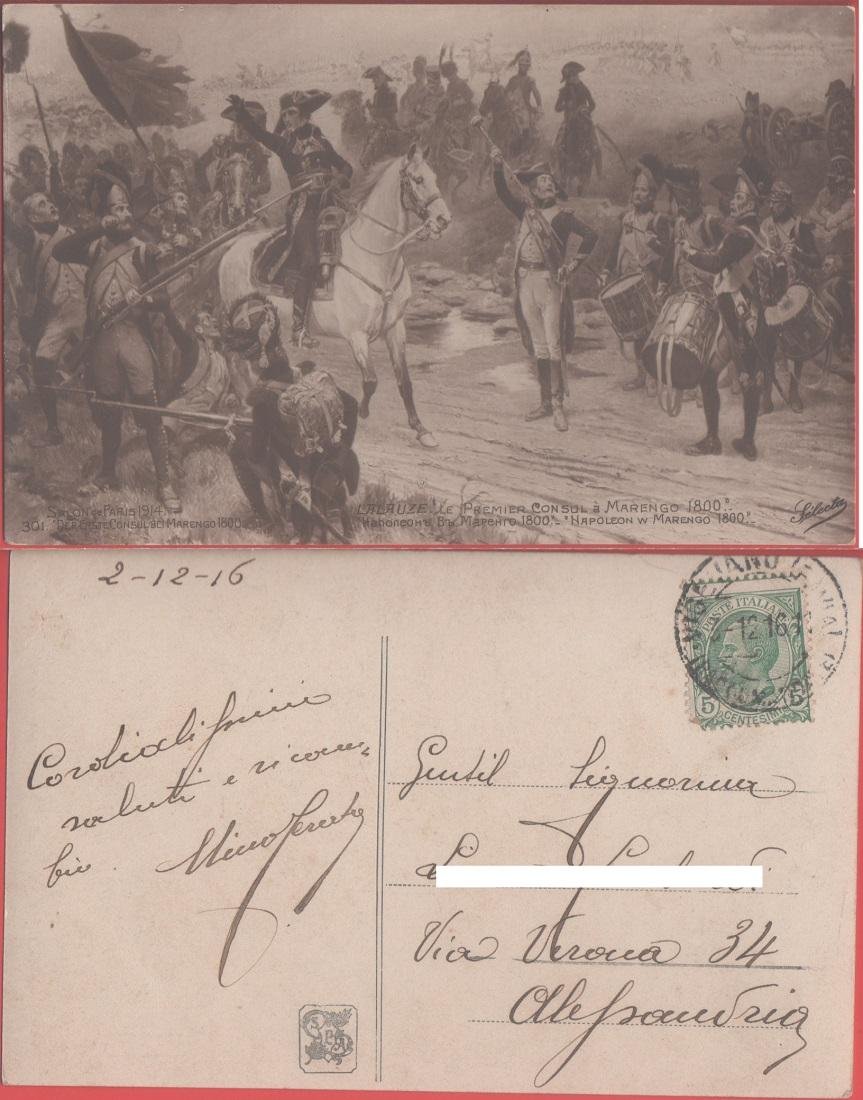 SALON DE PARIS 1914.
LALAUZE. "LE PREMIER CONSUL à MARENGO 1800"
301. "DER ERSTE CONSUL BEI MARENGO 1800"
"Наполеонъ Въ Маренго 1800". "NAPOLEON W MARENGO 1800".
Sélecta
2-12-16
POSTE ITALIANE
-12 16
5 CENTESIMI 5
Cordialissimi
saluti e ricam=
bio.
Gentil Signorina
Via Verona 34
Alessandria